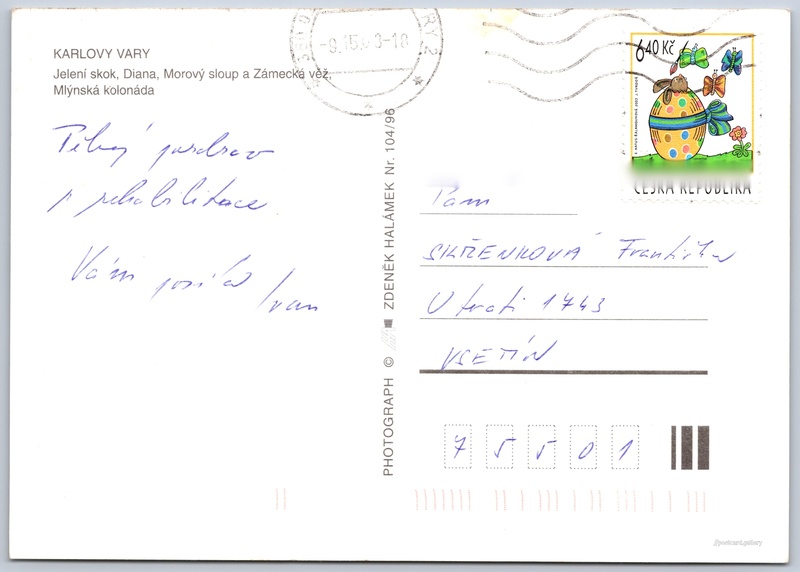 KARLOVY VARY
Jelení skok, Diana, Morový sloup a Zámecká věž,
Mlýnská kolonáda
Pěkný pozdrav
z rehabilitace
Vám posílá Ivan
PHOTOGRAPH © ZDENĚK HALÁMEK Nr. 104/96
6,40 Kč
ČESKÁ REPUBLIKA
Paní
SKŘENKOVÁ Františka
U trati 1743
VSETÍN
7 5 5 0 1